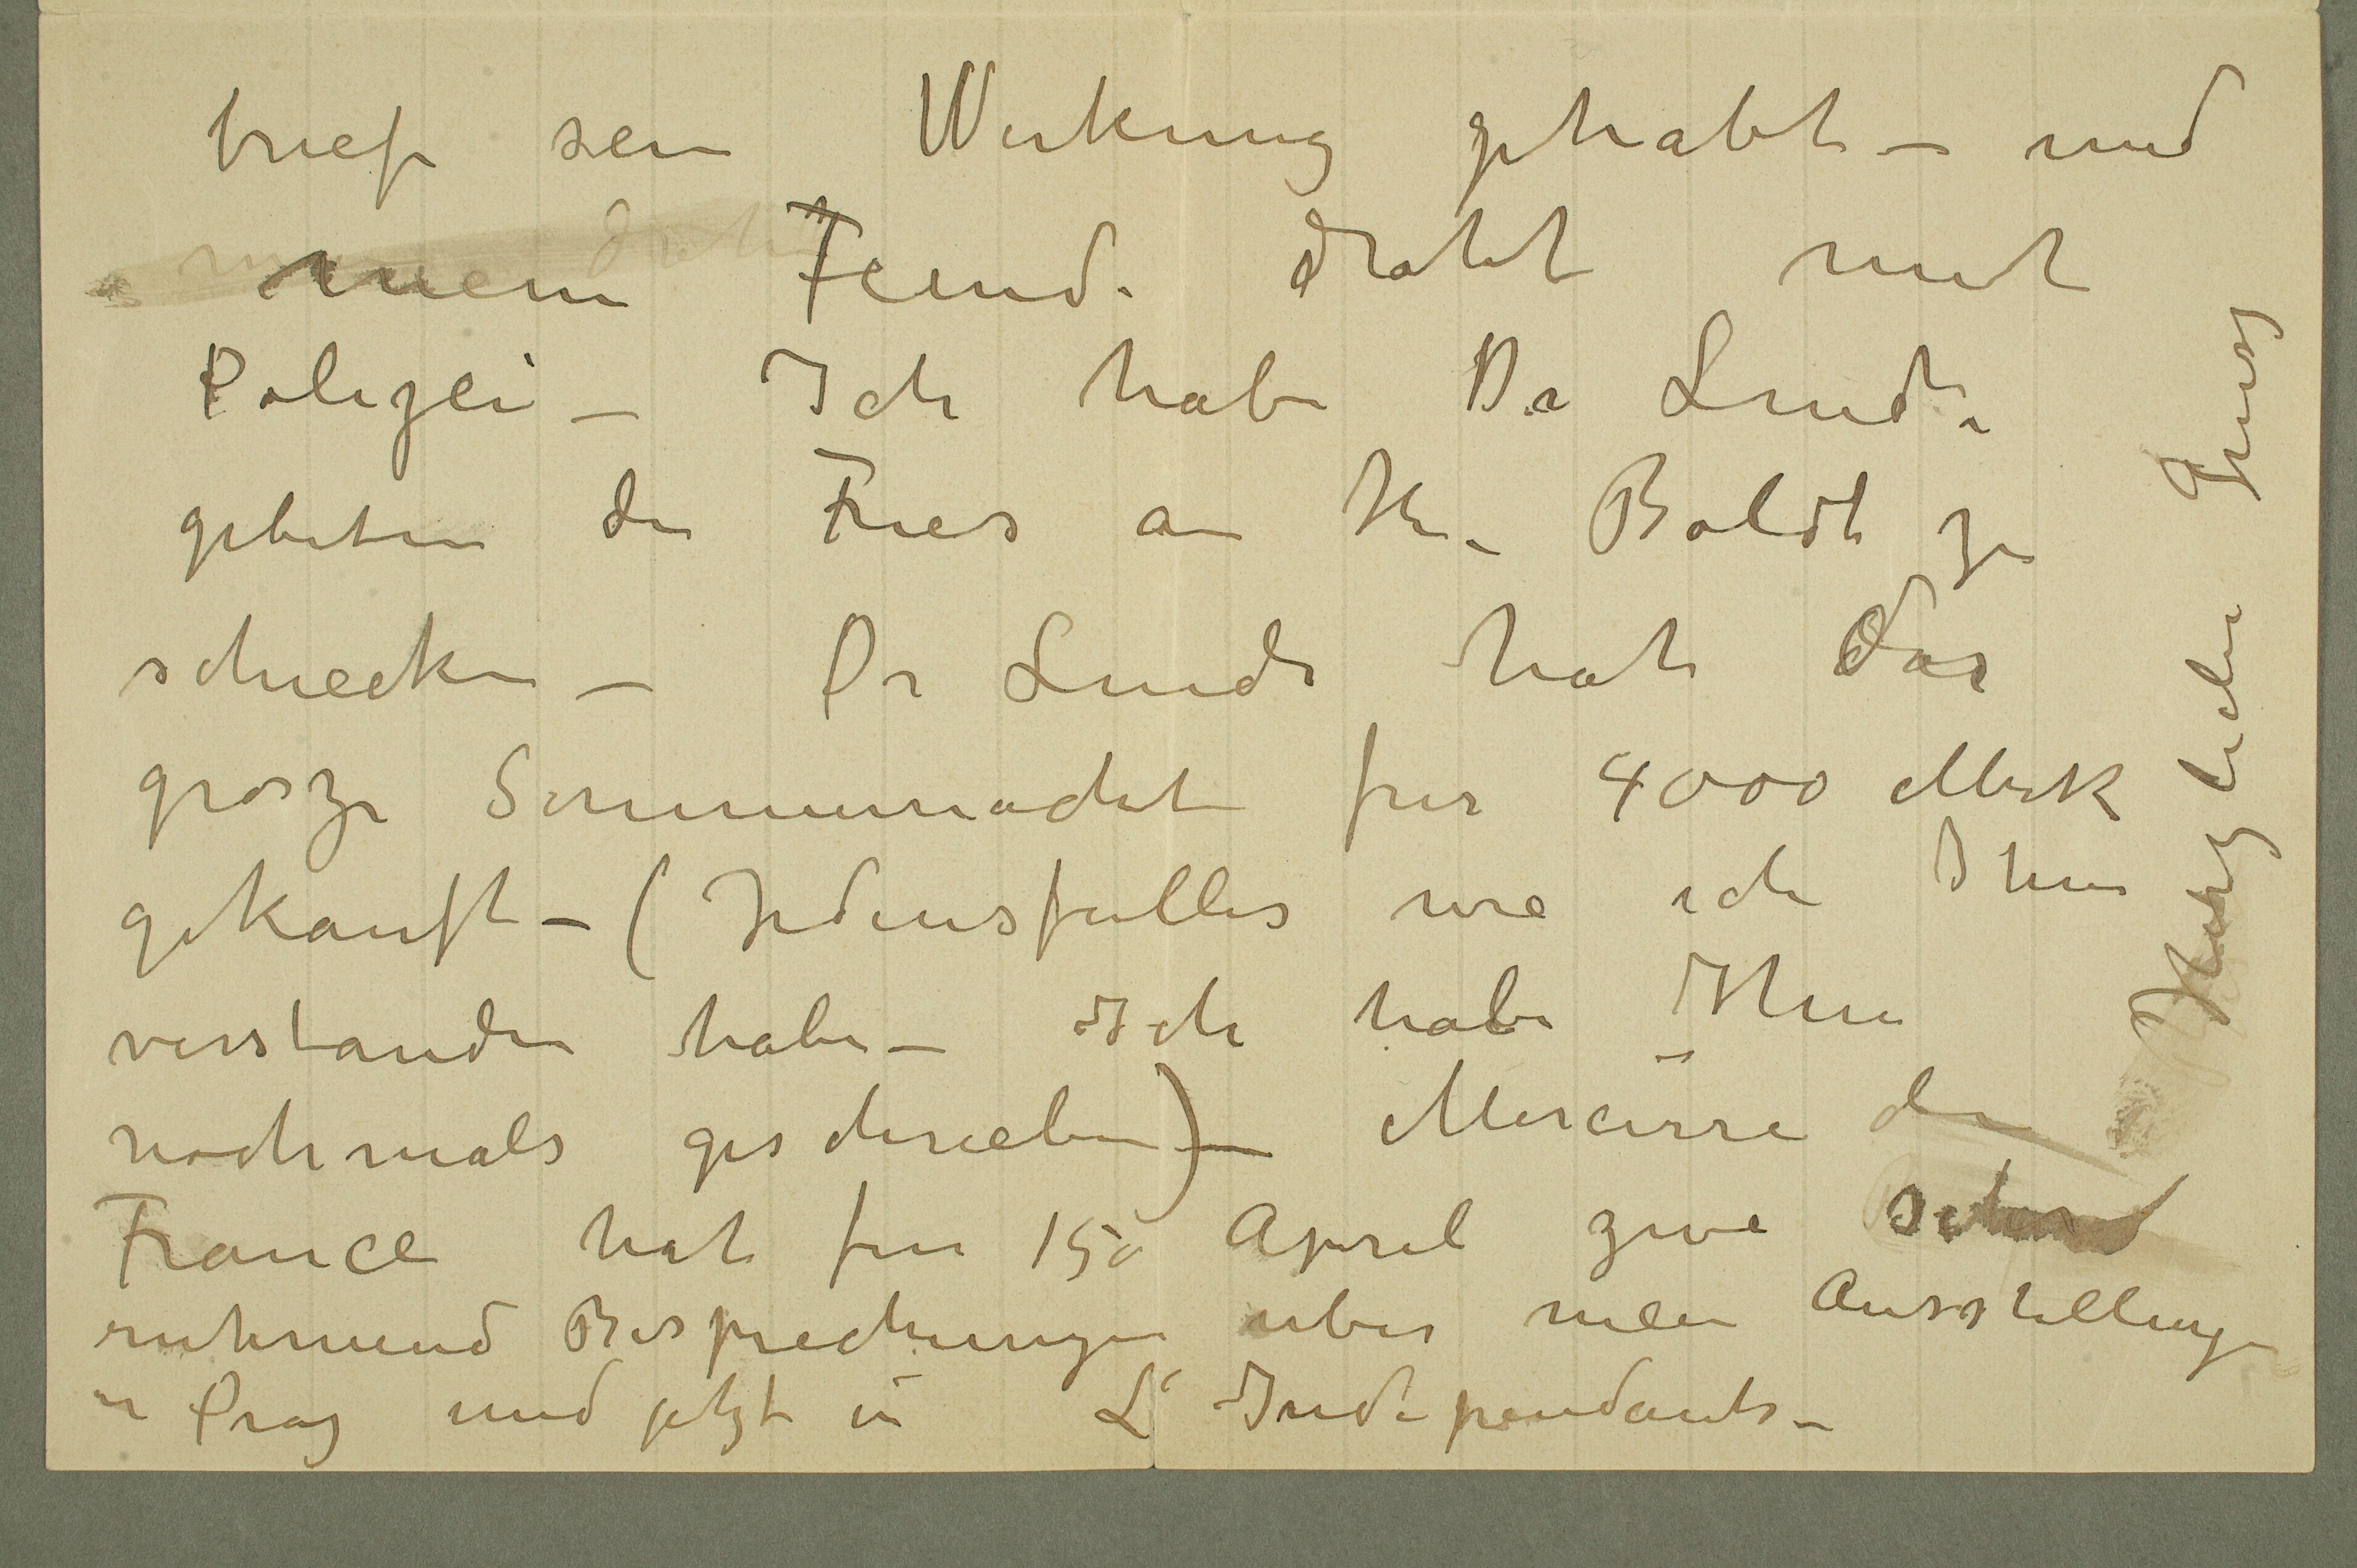 brief sein Wirkung gehabt – und
mein Feind. droht mit
Polizei – Ich habe Dr Linde
gebeten den Fries an Hr. Boldt zu
schiecken – Dr Linde hat das
grosze Sommernacht für 4000 Mark
gekauft – (Jedensfalles wie ich Ihm
verstanden habe – Ich habe Ihm
nochmals geschrieben) – Mercüre de
France hat für 15o April zwei sehr
rühmend Besprechungen über mein Ausstellungen
in Prag und jetzt in L'Independants –
Herzlichen Gruss